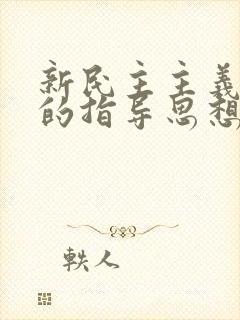 新民主主義
的指导思想
軼人